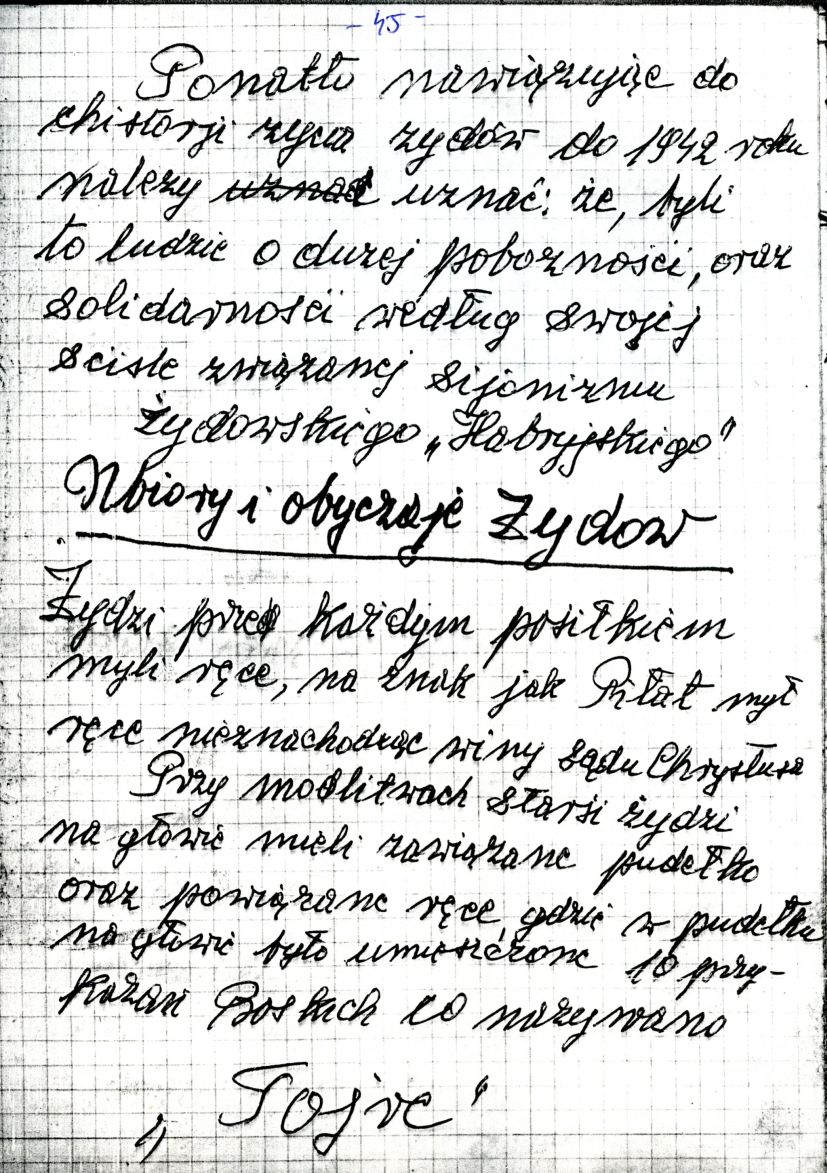 - 45 -
Ponatto nawiązując do
chistorji zycia zydów do 1942 roku
nalezy uznać uznać: że, byli
to ludzie o duzej poboznosci, oraz
solidarnosci według swojej
sciśle związanej sijonizmu
żydowskiego „Habryjskiego"
Ubiory i obyczaje Zydow
Żydzi przed każdym posiłkiem
myli ręce, na znak jak Piłat mył
ręce nieznachodząc winy sądu Chrystusa
Przy modlitwach starsi żydzi
na głowie mieli zawiązane pudełko
oraz powiązane ręce gdzie w pudełku
na głowie było umieszczone 10 przy-
kazań Boskich co nazywano
„Tojre"